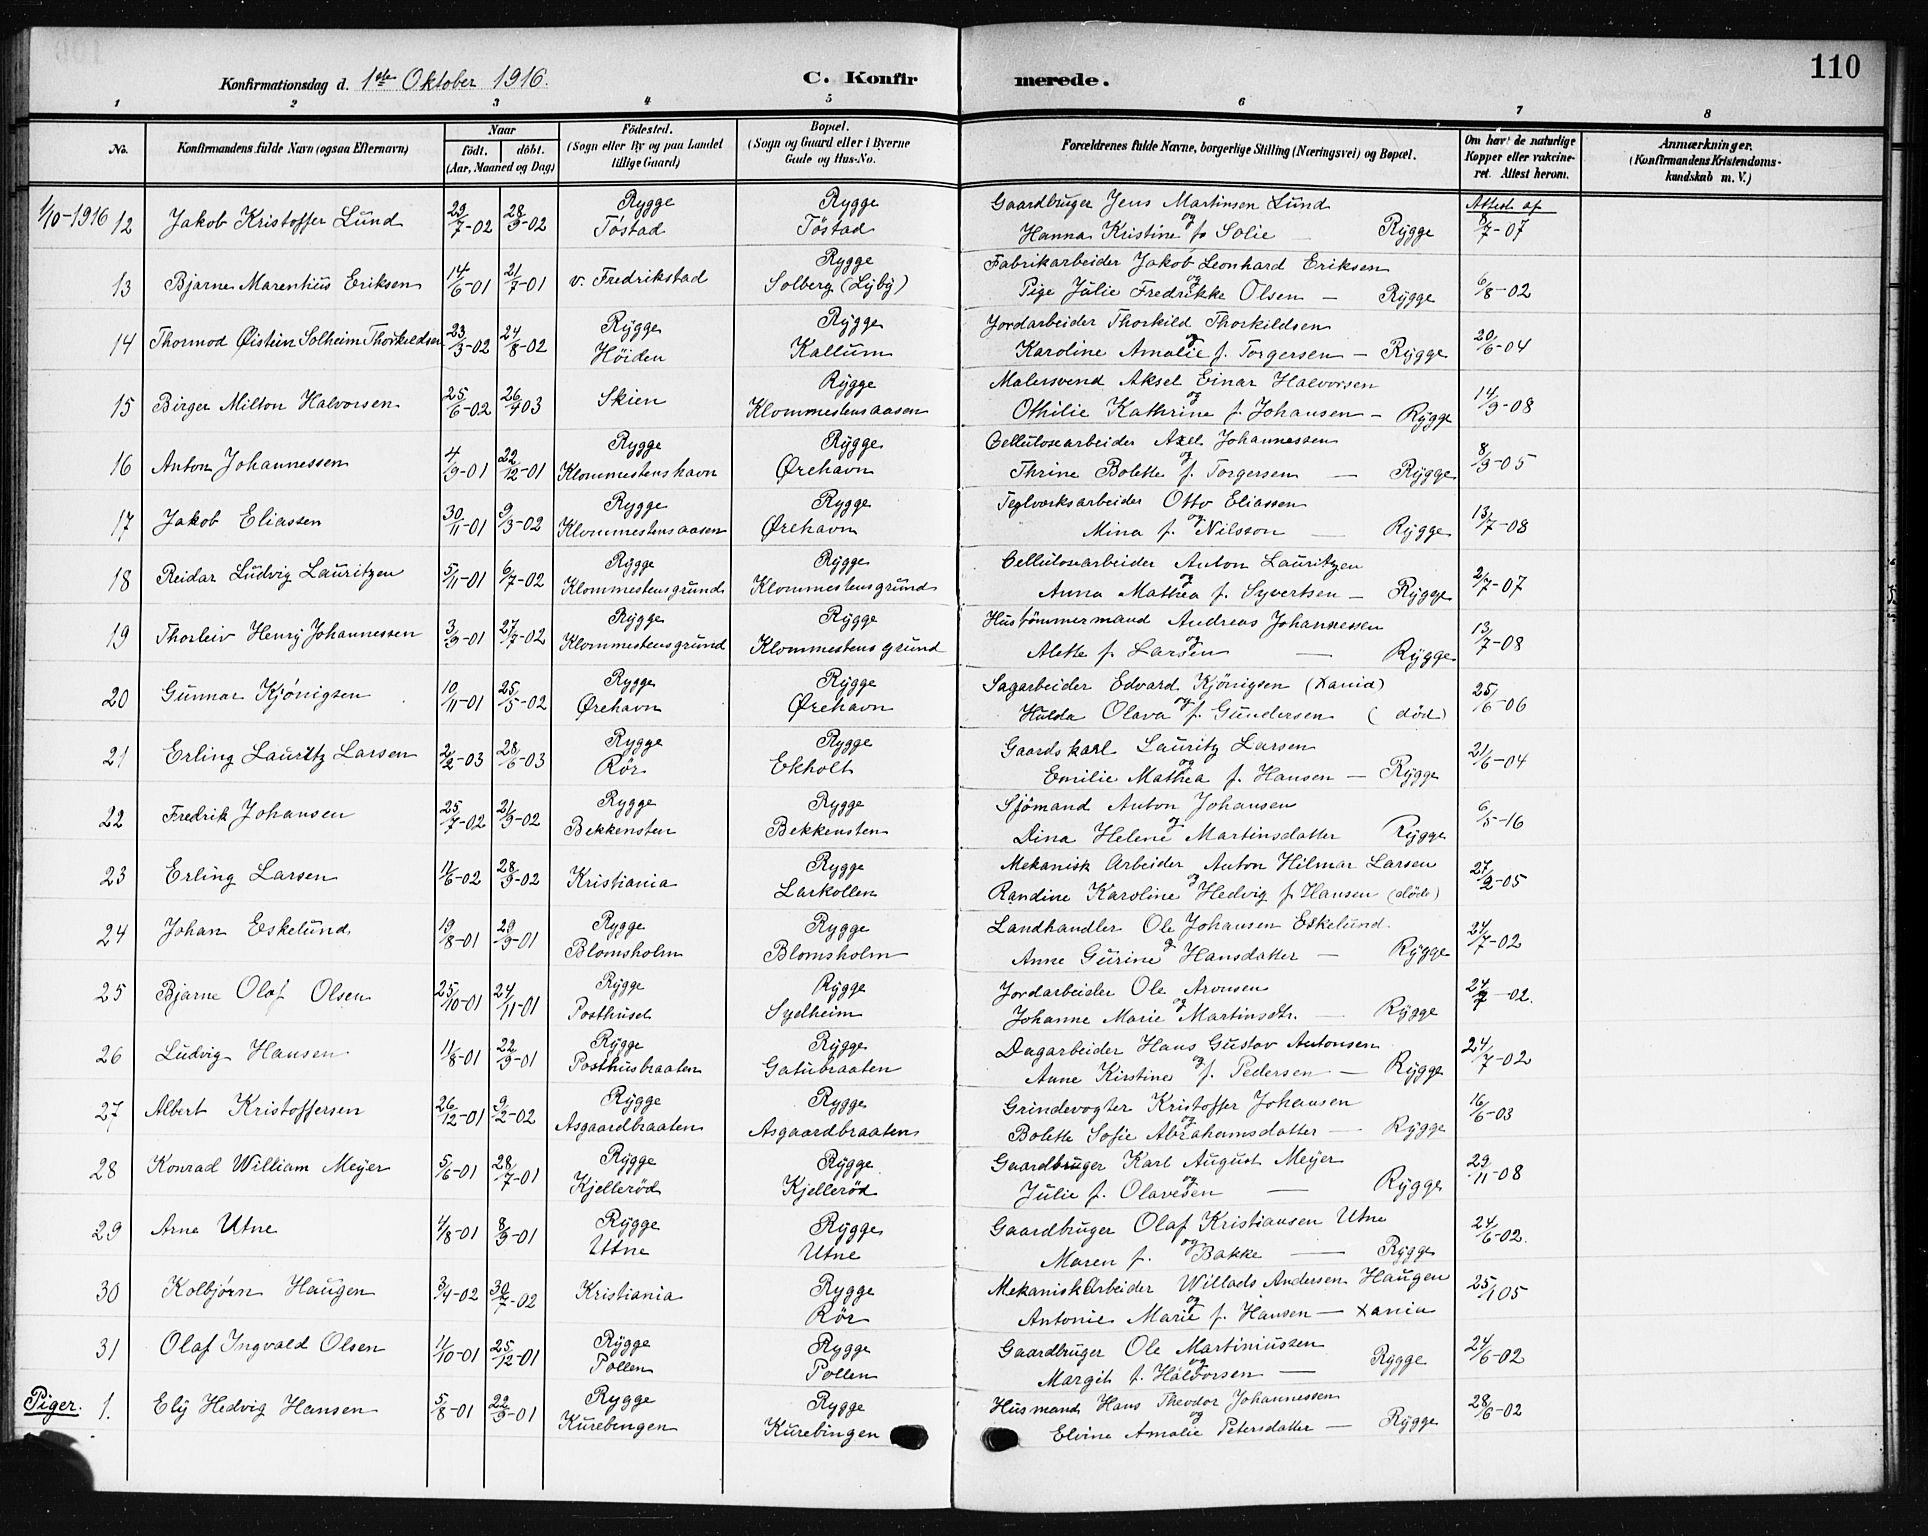 110
Konfirmationsdag d. 1ste Oktober 1916. C. Konfirmerede.
1 2 3 4 5 6 7 8
No. Konfirmandens fulde Navn (ogsaa Efternavn) Naar født. døbt. (Aar, Maaned og Dag) Födested. (Sogn eller By og paa Landet tillige Gaard) Bopæl. (Sogn og Gaard eller i Byerne Gade og Hus-No. Forældrenes fulde Navne, borgerlige Stilling (Næringsvei) og Bopæl. Om havt de naturlige Kopper eller vakcineret. Attest herom. Anmærkninger. (Konfirmandens Kristendomskundskab m. V.)
1/10-1916 12 Jakob Kristoffer Lund 29/7-02 28/9-02 Rygge Töstad Rygge Töstad Gaardbruger Jens Martinsen Lund og Hanna Kristine f. Solie Rygge Attest af 8/7-07
13 Bjarne Marentius Eriksen 14/6-01 21/7-01 v. Fredrikstad Rygge Solberg (Lyby) Fabrikarbeider Jakob Leonhard Eriksen og Pige Julie Fredrikke Olsen — Rygge 6/8-02
14 Thormod Øistein Solheim Thorkildsen 23/3-02 24/8-02 Rygge Höiden Rygge Kallum Jordarbeider Thorkild Thorkildsen og Karoline Amalie f. Torgersen — Rygge 20/6-04
15 Birger Milton Halvorsen 25/6-02 26/4 03 Skien Rygge Klommestensaasen Malersvend Aksel Einar Halvorsen og Othilie Kathrine f. Johansen — Rygge 14/9-08
16 Anton Johannessen 4/9-01 22/12-01 Rygge Klommestenshavn Rygge Ørehavn Cellulosearbeider Axel Johannessen og Thrine Bolette f. Torgersen — Rygge 8/9-05
17 Jakob Eliassen 30/11-01 9/3-02 Rygge Klommestensaasen Rygge Ørehavn Teglværksarbeider Otto Eliassen og Mina f. Nilsson — Rygge 13/7-08
18 Reidar Ludvig Lauritzen 5/11-01 6/7-02 Rygge Klommestensgrund Rygge Klommestensgrund Cellulosearbeider Anton Lauritzen og Anna Mathea f. Syvertsen — Rygge 2/7-07
19 Thorleiv Henry Johannessen 3/9-01 27/7-02 Rygge Klommestensgrund Rygge Klommestens grund Hustömmermand Andreas Johannessen og Alette f. Larsen — Rygge 13/7-08
20 Gunnar Kjönigsen 10/11-01 25/5-02 Rygge Ørehavn Rygge Ørehavn Sagarbeider Edvard Kjönigsen (Xania) og Hulda Olava f. Gundersen (död) 25/6-06
21 Erling Lauritz Larsen 2/2-03 28/6-03 Rygge Rör Rygge Ekholt Gaardskarl Lauritz Larsen og Emilie Mathea f. Hansen — Rygge 21/6-04
22 Fredrik Johansen 25/7-02 21/9-02 Rygge Bekkensten Rygge Bekkensten Sjömand Anton Johansen og Dina Helene Martinsdatter Rygge 6/5-16
23 Erling Larsen 11/6-02 28/9-02 Kristiania Rygge Larkollen Mekanisk Arbeider Anton Hilmar Larsen og Randine Karoline Hedvig f. Hansen (döde) 27/2-05
24 Johan Eskelund 19/8-01 29/9-01 Rygge Blomsholm Rygge Blomsholm Landhandler Ole Johansen Eskelund og Anne Gurine Hansdatter — Rygge 24/7-02
25 Bjarne Olaf Olsen 25/10-01 24/11-01 Rygge Posthuset Rygge Sydheim Jordarbeider Ole Arvesen og Johanne Marie Martinsdtr. — Rygge 24/7-02.
26 Ludvig Hansen 11/8-01 22/9-01 Rygge Posthusbraaten Rygge Gatubraaten Dagarbeider Hans Gustav Antonsen og Anne Kirstine f. Pedersen — Rygge 24/7-02
27 Albert Kristoffersen 26/12-01 9/2-02 Rygge Asgaardbraaten Rygge Asgaardbraaten Grindevogter Kristoffer Johansen og Bolette Sofie Abrahamsdatter — Rygge 16/6-03
28 Konrad William Meyer 5/6-01 28/7-01 Rygge Kjelleröd Rygge Kjelleröd Gaardbruger Karl August Meyer og Julie f. Olavesen — Rygge 29/11-08
29 Arne Utne 4/8-01 8/9-01 Rygge Utne Rygge Utne Gaardbruger Olaf Kristiansen Utne og Maren f. Bakke — Rygge 24/6-02.
30 Kolbjørn Haugen 3/4-02 30/7-02 Kristiania Rygge Rör Mekanisk Arbeider Willads Andersen Haugen og Antonie Marie f. Hansen — Xania 25/1 05
31 Olaf Ingvald Olsen 11/10-01 25/12-01 Rygge Pollen Rygge Pollen Gaardbruger Ole Martiniussen og Margit f. Halvorsen — Rygge 24/6-02
Piger. 1. Ely Hedvig Hansen 5/8-01 22/9-01 Rygge Kurebingen Rygge Kurebingen Husmand Hans Theodor Johannessen og Elvine Amalie Petersdatter — Rygge 28/6-02